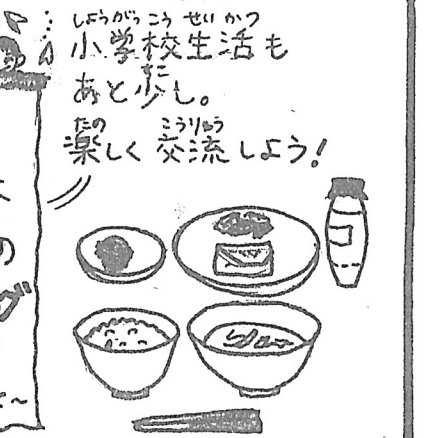 小学校生活も
あと少し。
楽しく交流しよう!